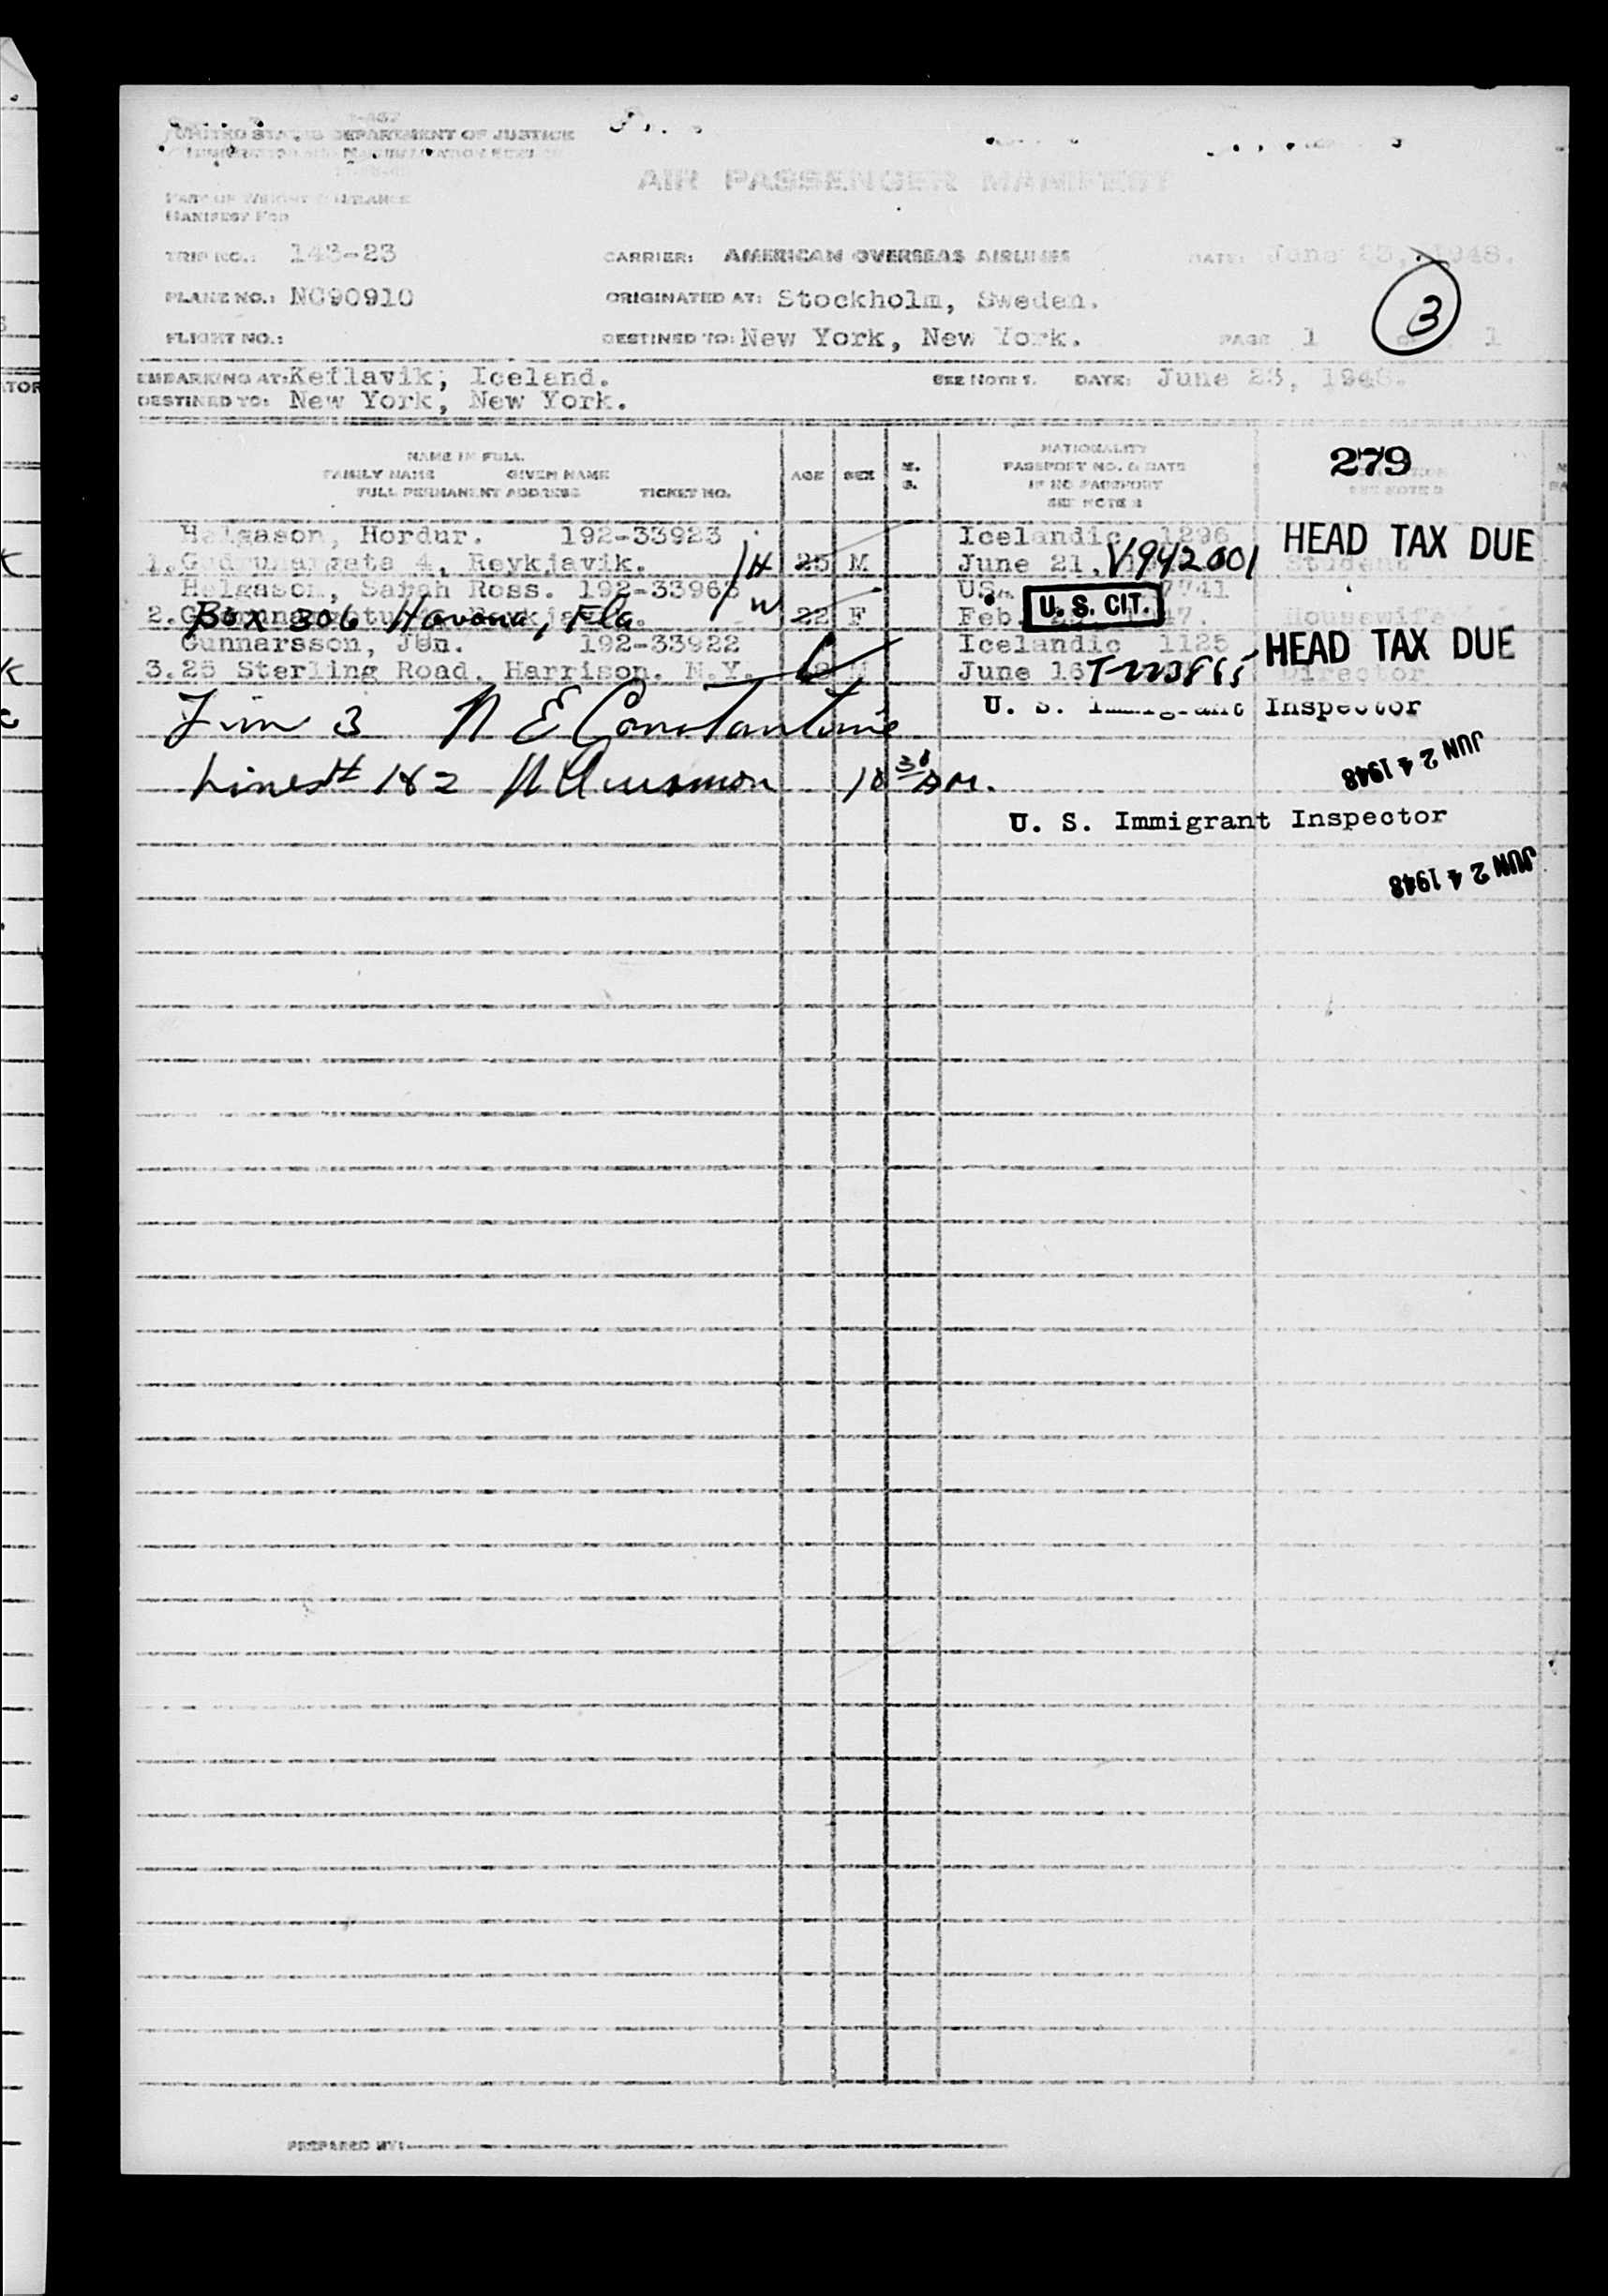 UNITED STATES DEPARTMENT OF JUSTICE
AIR PASSENGER MANIFEST
MANIFEST FOR
TRIP NO.: 143-23 CARRIER: AMERICAN OVERSEAS AIRLINES DATE: June 23, 1948.
PLANE NO.: NC90910 ORIGINATED AT: Stockholm, Sweden.
3
FLIGHT NO.: DESTINED TO: New York, New York. PAGE 1 OF 1
EMBARKING AT: Keflavik, Iceland. SEE NOTE 1. DATE: June 23, 1948.
DESTINED TO: New York, New York.
NAME IN FULL
FAMILY NAME GIVEN NAME
FULL PERMANENT ADDRESS TICKET NO.
AGE SEX M. S.
NATIONALITY
PASSPORT NO. & DATE
IF NO PASSPORT
SEE NOTE 2
279
Helgason, Hordur. 192-33923 Icelandic 1296 HEAD TAX DUE
1. Gudrunargata 4, Reykjavik. H 25 M June 21, V942001 Student
Helgason, Sarah Ross. 192-33963 W 7741
2. Box 306 Havana, Fla 22 F Feb. U. S. CIT. 47. Housewife
Gunnarsson, Jon. 192-33922 Icelandic 1125 HEAD TAX DUE
3. 25 Sterling Road, Harrison, N.Y. June 16 Director
Line 3 N E Constantine U. S. Immigrant Inspector
JUN 24 1948
Lines 1 & 2 10 30 AM.
U. S. Immigrant Inspector
JUN 24 1948
PREPARED BY: